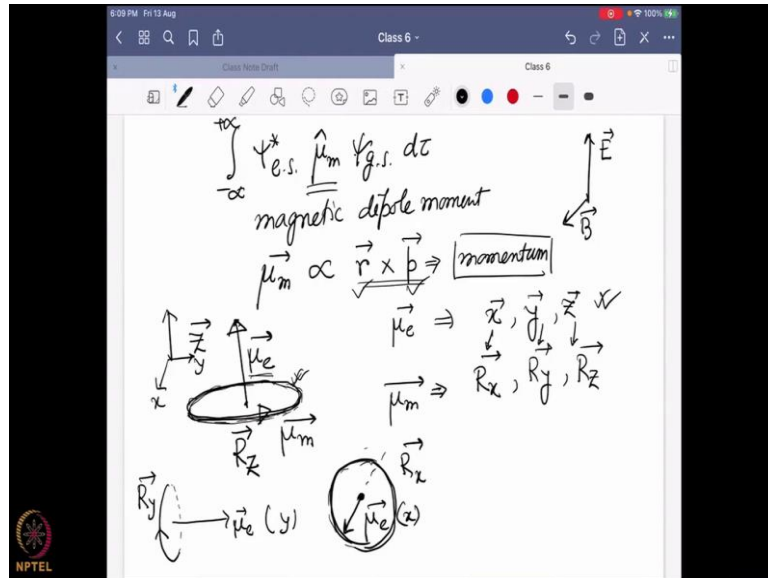 6:09 PM Fri 13 Aug
100%
Class 6
Class Note Draft
Class 6
+∝
∫ ψ*e.s. μ̂m ψg.s. dτ
-∝
E⃗
B⃗
magnetic dipole moment
μ⃗m ∝ r⃗ × p⃗ ⇒ momentum
μ⃗e ⇒ x⃗, y⃗, z⃗
μ⃗m ⇒ R⃗x, R⃗y, R⃗z
Z⃗
y
x
μ⃗e
R⃗z
μ⃗m
R⃗y
μ⃗e (y)
R⃗x
μ⃗e (x)
NPTEL